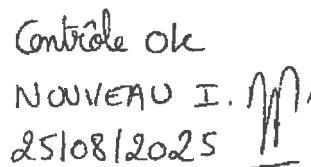 Contrôle ok
NOUVEAU I.
25/08/2025